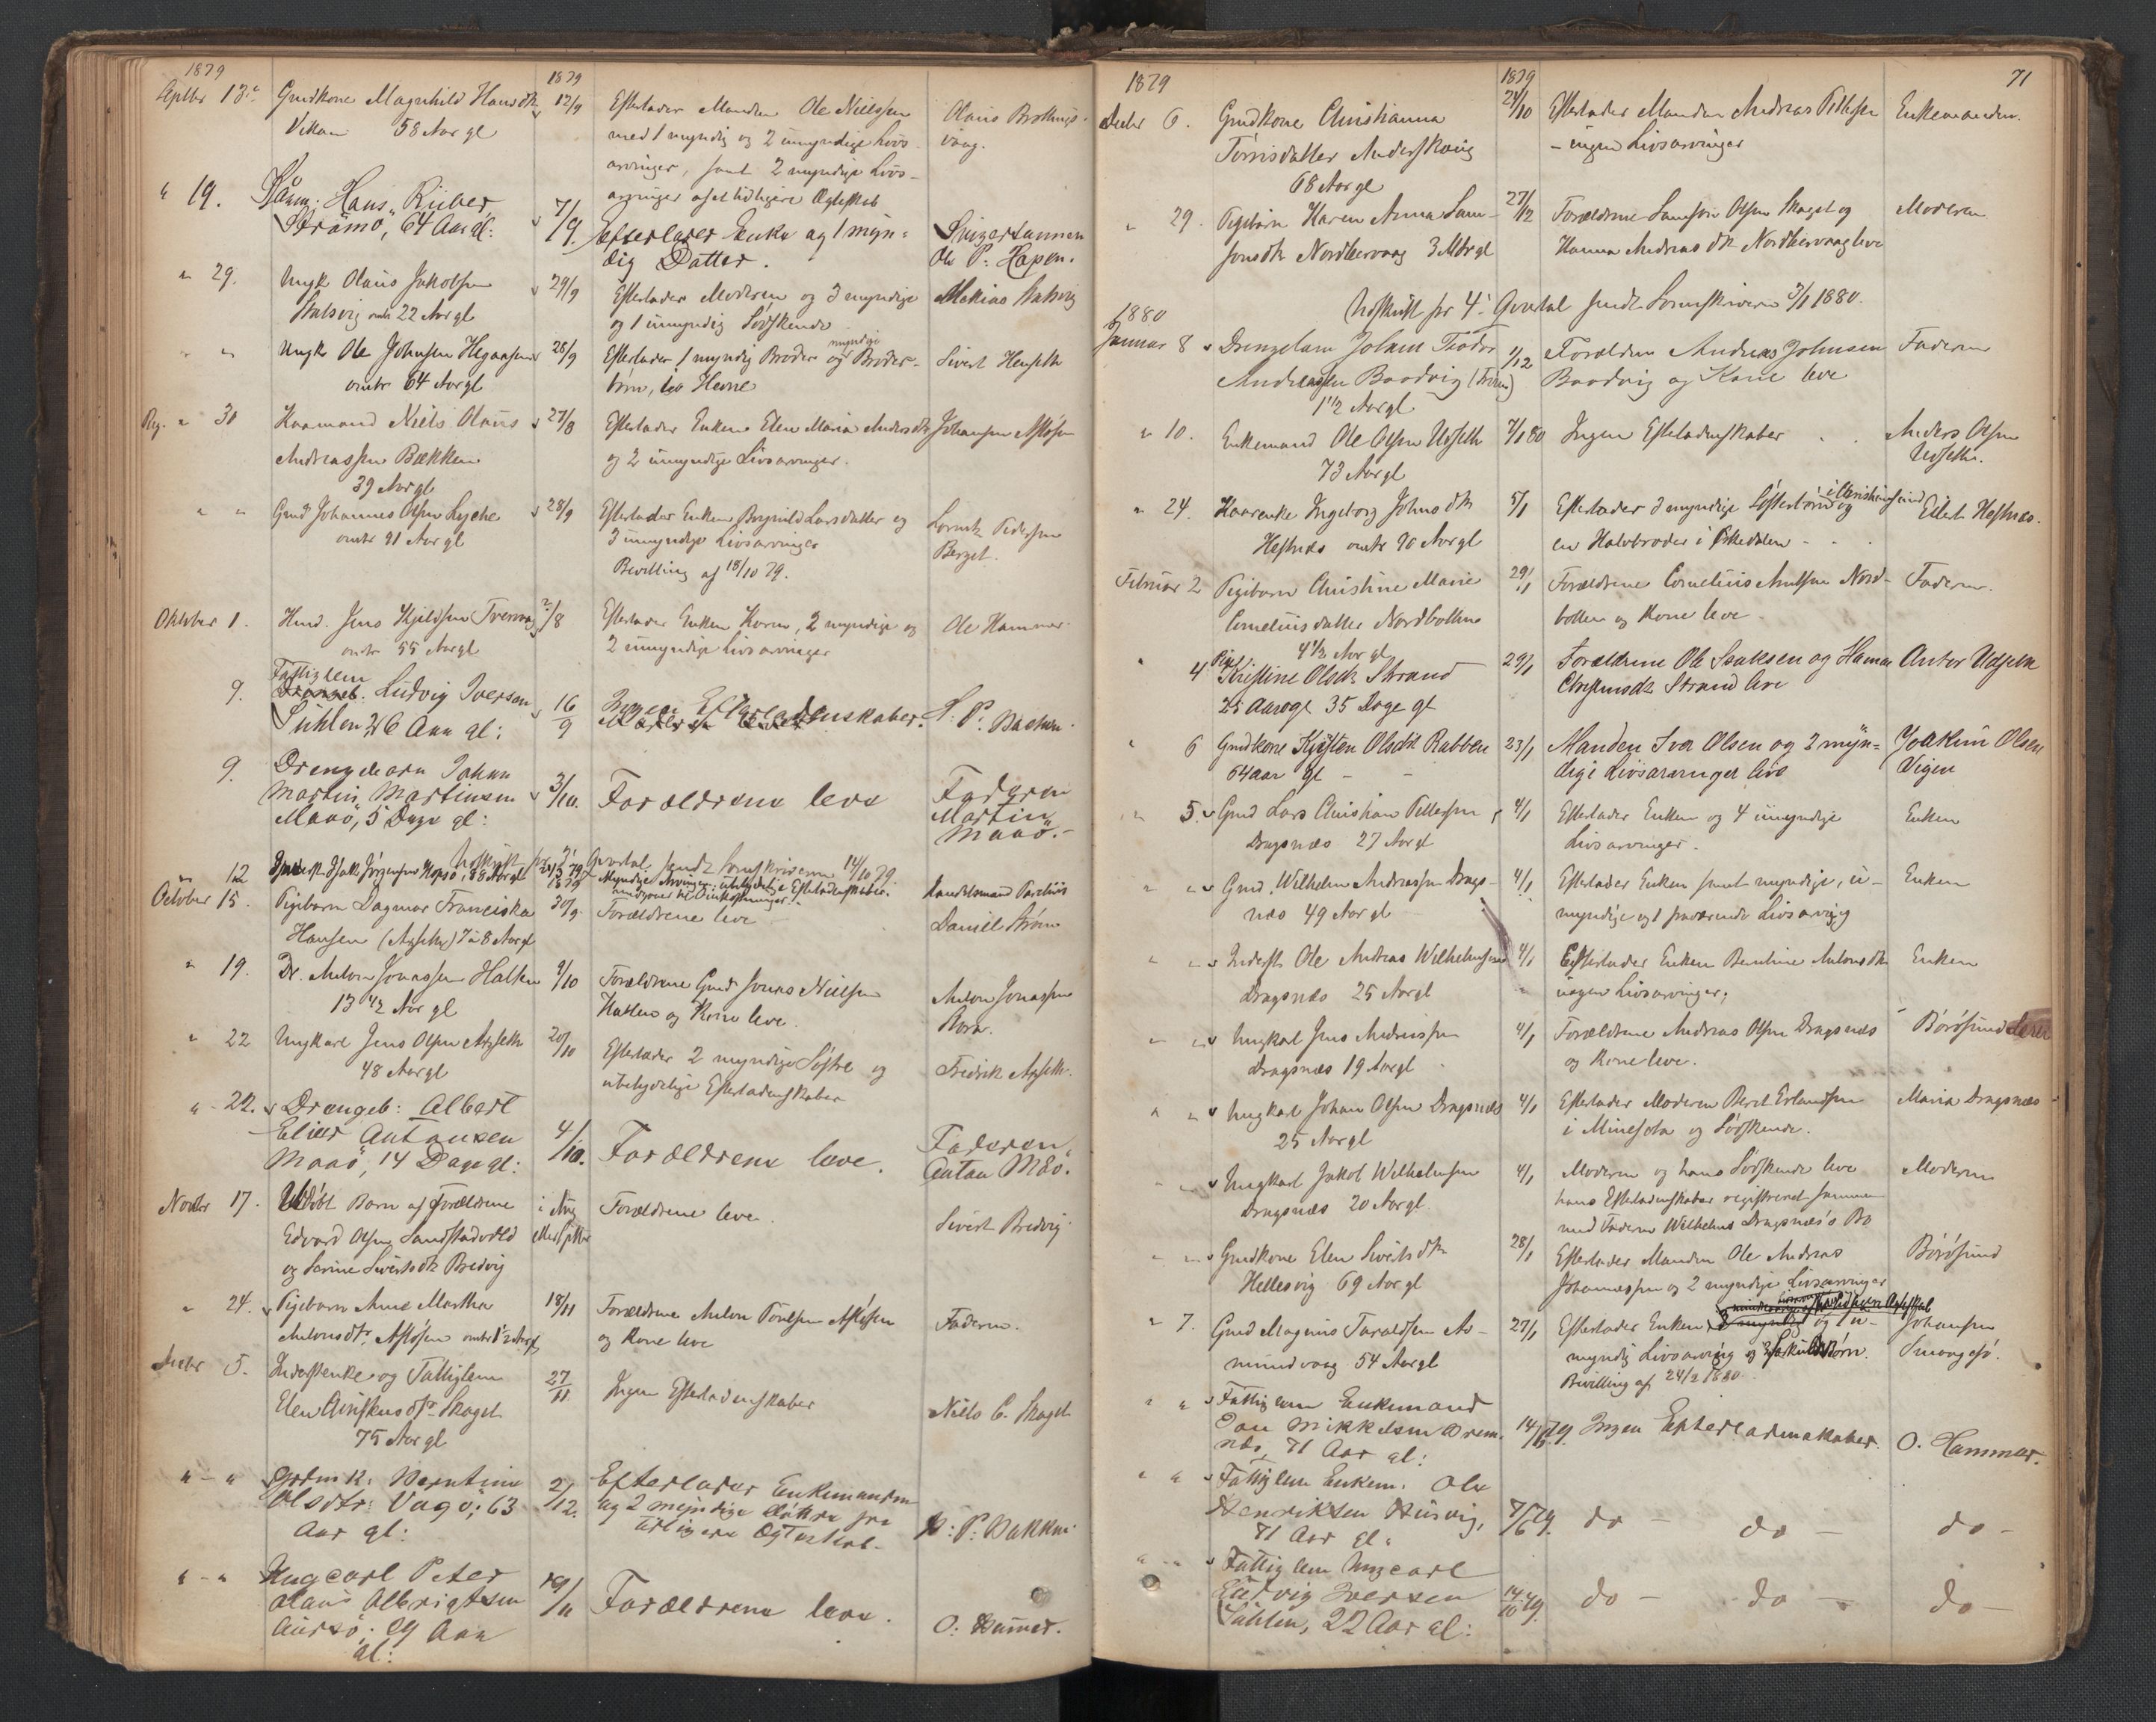 1879
1879
Septbr 13.
Gmdkone Magnhild Hansdtr
Vikan 58 Aar gl
12/9
Efterlader Manden Ole Nielssen
med 1 myndig og 2 umyndige Livs-
arvinger, samt 2 myndige Livs-
arvinger af et tidligere Ægteskab
Olaus
vaag.
" 19.
Kåm: Hans Rüber
Strømö, 64 Aar gl:
7/9.
Efterlader Enke og 1 myn-
dig Datter.
Svigersønnen
Ole P. Hopen.
" 29.
Ungk Olaus Jakobsen
Stalsvig omtr 22 Aar gl
29/9
Efterlader Moderen og 3 myndige
og 1 umyndig Södskende
Stalsvig
" "
Ungk Ole Johnsen
omtr 64 Aar gl
28/9
Efterlader 1 myndig Broder og myndige Broder-
börn, i Hevne
Sivert
Reg. " 30
Kaarmand Niels Olaus
Andreassen Bækken
39 Aar gl
27/8
Efterlader Enken Elen Maria Andersdtr
og 2 umyndige Livsarvinger.
Johansen
" "
Gmd Johannes Olsen Lyche
omtr 41 Aar gl
28/9
Efterlader Enken Larsdatter og
3 umyndige Livsarvinger
Bevilling af 18/10 79.
Lorentz Pedersen
Berget.
Oktober 1.
Hmd. Jens Kjeldsen Tvervaag
omtr 55 Aar gl
2/8
Efterlader Enken Karen, 2 myndige og
2 umyndige Livsarvinger
Ole Hammer
9.
Fattiglem
Drengeb. Ludvig Iversen
Sühlen, 26 Aar gl:
16/9
Ingen Efterladenskaber.
P. Bakken.
9.
Drengebarn Johan
Martin Martinsen
Maaö, 5 Dage gl:
3/10.
Forældrene leve
Faderen
Martin
Maaö.-
Udskrift for 3' Qvartal sendt Sorenskriveren 14/10 79.
" 12
Isak Jörgensen Hopsö, 88 Aar gl
Myndige Arvinger; ubetydelige Efterladenskaber.
Handelsmand Parelius
October 15.
Pigebarn Dagmar Franciska
Hansen 7 à 8 Aar gl
30/9.
Forældrene leve
Daniel Ström
" 19.
Dr. Anton Jonassen Hatlen
13 1/2 Aar gl
9/10
Forældrene Gmd Jonas Nielsen
Hatlen og Kone leve.
Anton Jonassen
" 22
Ungkarl Jens Olsen
48 Aar gl
20/10
Efterlader 2 myndige Söstre og
ubetydelige Efterladenskaber
Fredrik
" - 22.
Drengeb: Albert
Elias Antonsen
Maaö, 14 Dage gl:
4/10.
Forældrene leve.
Faderen
Anton Maö.
Novbr 17.
Udöbt Barn af Forældrene
Edvard Olsen Sandstadvold
og Serine Sivertsdtr Bredvig
i Aug
eller Septbr
Forældrene leve.
Sivert Bredvig.
" 24.
Pigebarn Anne Martha
Antonsdtr
18/11
Forældrene Anton Poulsen
og Kone leve
Faderen.
Decbr 5.
Inderstenke og Fattiglem
Elen Skaget
75 Aar gl
27/11
Ingen Efterladenskaber
Niels C. Skaget
" - "
Bentine
Olsdtr: Vagö; 63
Aar gl:
2/12.
Efterlader Enkemanden
og 2 myndige Döttre fra
tidligere Ægteskab.
P: Bakken.
" - "
Ungcarl Peter
Olaus Albrigtsen
Aursö; 29 Aar
gl:
19/11
Forældrene leve.
O: Hammer.
1879
1879
71
Decbr 6.
Gmdkone Christianna
Törrisdatter Anderskoug
68 Aar gl
24/10
Efterlader Manden Andreas Pettersen
- ingen Livsarvinger
Enkemanden.
" 29.
Pigebarn Karen Anna Sam-
sonsdtr Nordhervaag 3 Mdr gl
27/12
Forældrene Samson Olsen Skaget og
Hanna Andreasdtr Nordhervaag leve
Moderen
Udskrift for 4' Qvartal sendt Sorenskriveren 3/1 1880.
1880
Januar 8
Drengebarn Johan Teodor
Andreassen Baadvig
1 1/2 Aar gl
1/12
Forældrene Andreas Johnsen
Baadvig og Kone leve
Faderen
" 10.
Enkemand Ole Olsen Udseth
73 Aar gl
7/1 80
Ingen Efterladenskaber
Anders Olsen
Udseth.
" 24.
Kaarenke Ingeborg Johnsdtr
Hestnæs omtr 90 Aar gl
5/1
Efterlader 3 myndige Söstebörn i Christiansund og
en Halvbroder i Ørkedalen -
Eilert Hestnæs.
Februar 2
Pigebarn Christine Marie
Corneliusdatter Nordbotten
4 1/2 Aar gl
29/1
Forældrene Cornelius Arntsen Nord-
botten og Kone leve
Faderen.
" 4
Pige Kristine Olsdtr Strand
2 Aar og 35 Dage gl
29/1
Forældrene Ole Isaksen og Hanna
Christensdtr Strand leve
Anton Udseth
" 6
Gmdkone Kjesten Olsdtr Rabben
64 aar gl -
23/1
Manden Iver Olsen og 2 myn=
dige Livsarvinger leve
Joakim Olsen
Vigen
" 5.
Gmd Lars Christian Pettersen
Dragsnæs 27 Aar gl
4/1
Efterlader Enken og 4 umyndige
Livsarvinger.
Enken
" "
Gmd. Wilhelm Andreassen Drags-
næs 49 Aar gl
4/1
Efterlader Enken samt myndige, u-
myndige og 1 fraværende Livsarving
Enken
" "
Inderst Ole Andreas Wilhelmsen
Dragsnæs 25 Aar gl
4/1
Efterlader Enken Bentine Antonsdtr
ingen Livsarvinger;
Enken
" "
Ungkarl Jens Andreassen
Dragsnæs 19 Aar gl
4/1
Forældrene Andreas Olsen Dragsnæs
og Kone leve.
Börösund
" "
Ungkarl Johan Olsen Dragsnæs
25 Aar gl
4/1
Efterlader Moderen Berit Erlandsen
i Minesota og Södskende.
Maria Dragsnæs
" "
Ungkarl Jakob Wilhelmsen
Dragsnæs 20 Aar gl.
4/1
Moderen og hans Södskende leve
hans Efterladenskaber registreret sammen
med Faderen Wilhelms Dragsnæs's Bo
Moderen
" "
Gmdkone Elen Sivertsdtr
Hellesvig 69 Aar gl
28/1
Efterlader Manden Ole Andreas
Johannessen og 2 myndige Livsarvinger
Börösund
" 7.
Gmd Magnus Taraldsen As-
mundvaag 54 Aar gl
27/1
Efterlader Enken, og 1 u-
myndig Livsarving og
Bevilling af 24/2 1880
Johansen
Smaagesö.
" "
Fattiglem Enkemand
Jon Mikkelsen
næs, 71 Aar gl:
Ingen Efterladenskaber.
O. Hammer.
" "
Fattiglem Enkem. Ole
Henriksen Husvig,
71 Aar gl.
7/6 79.
do -
do -
do -
" - "
Fattiglem Ungcarl
Ludvig Iversen
Sühlen, 22 Aar gl:
14/10 79.
do -
do -
do -